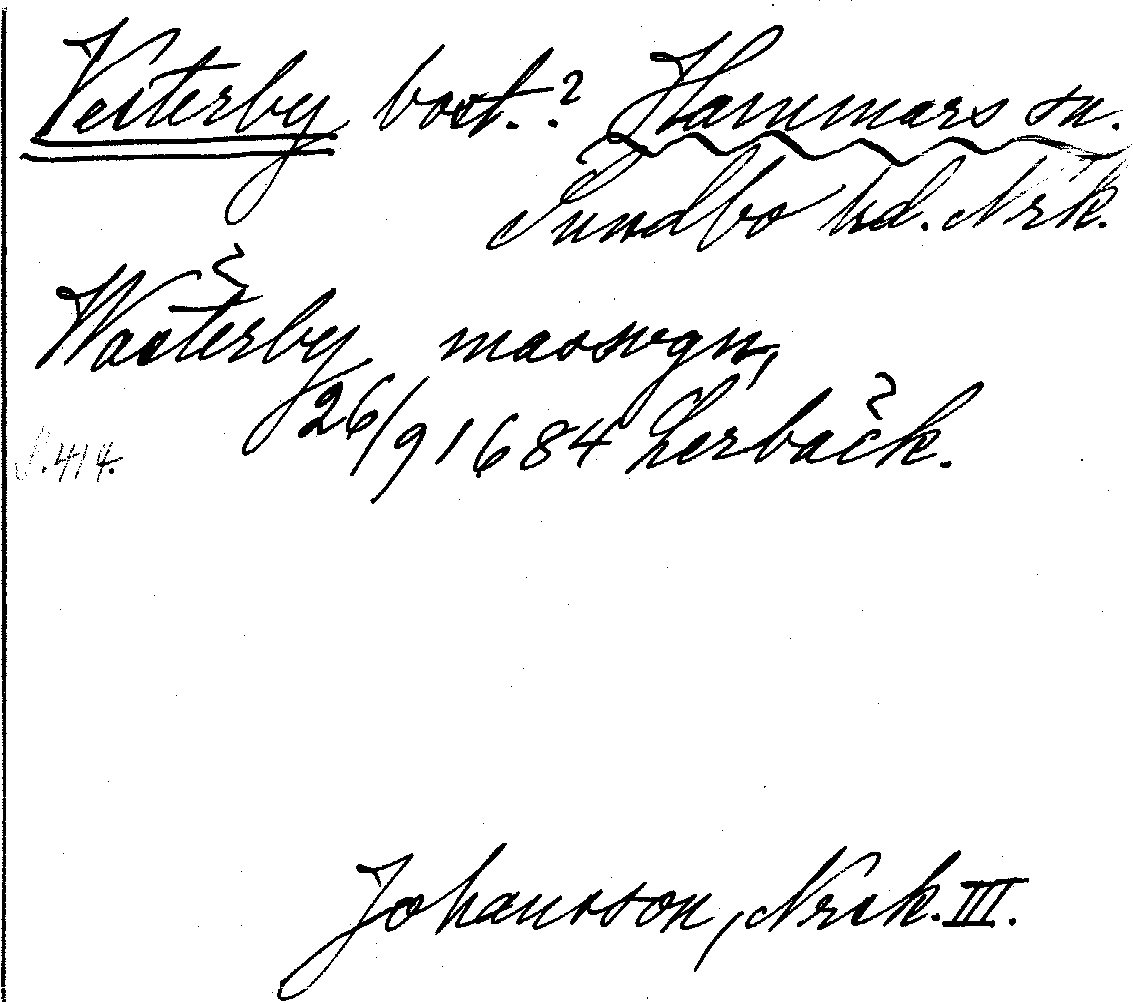 Vesterby bost.? Hammars sn.
Sundbo hd. Nrk.
Wasterby massvgn,
26/9 1684 Lerbäck.
S. 414.
Johansson, Närk. III.